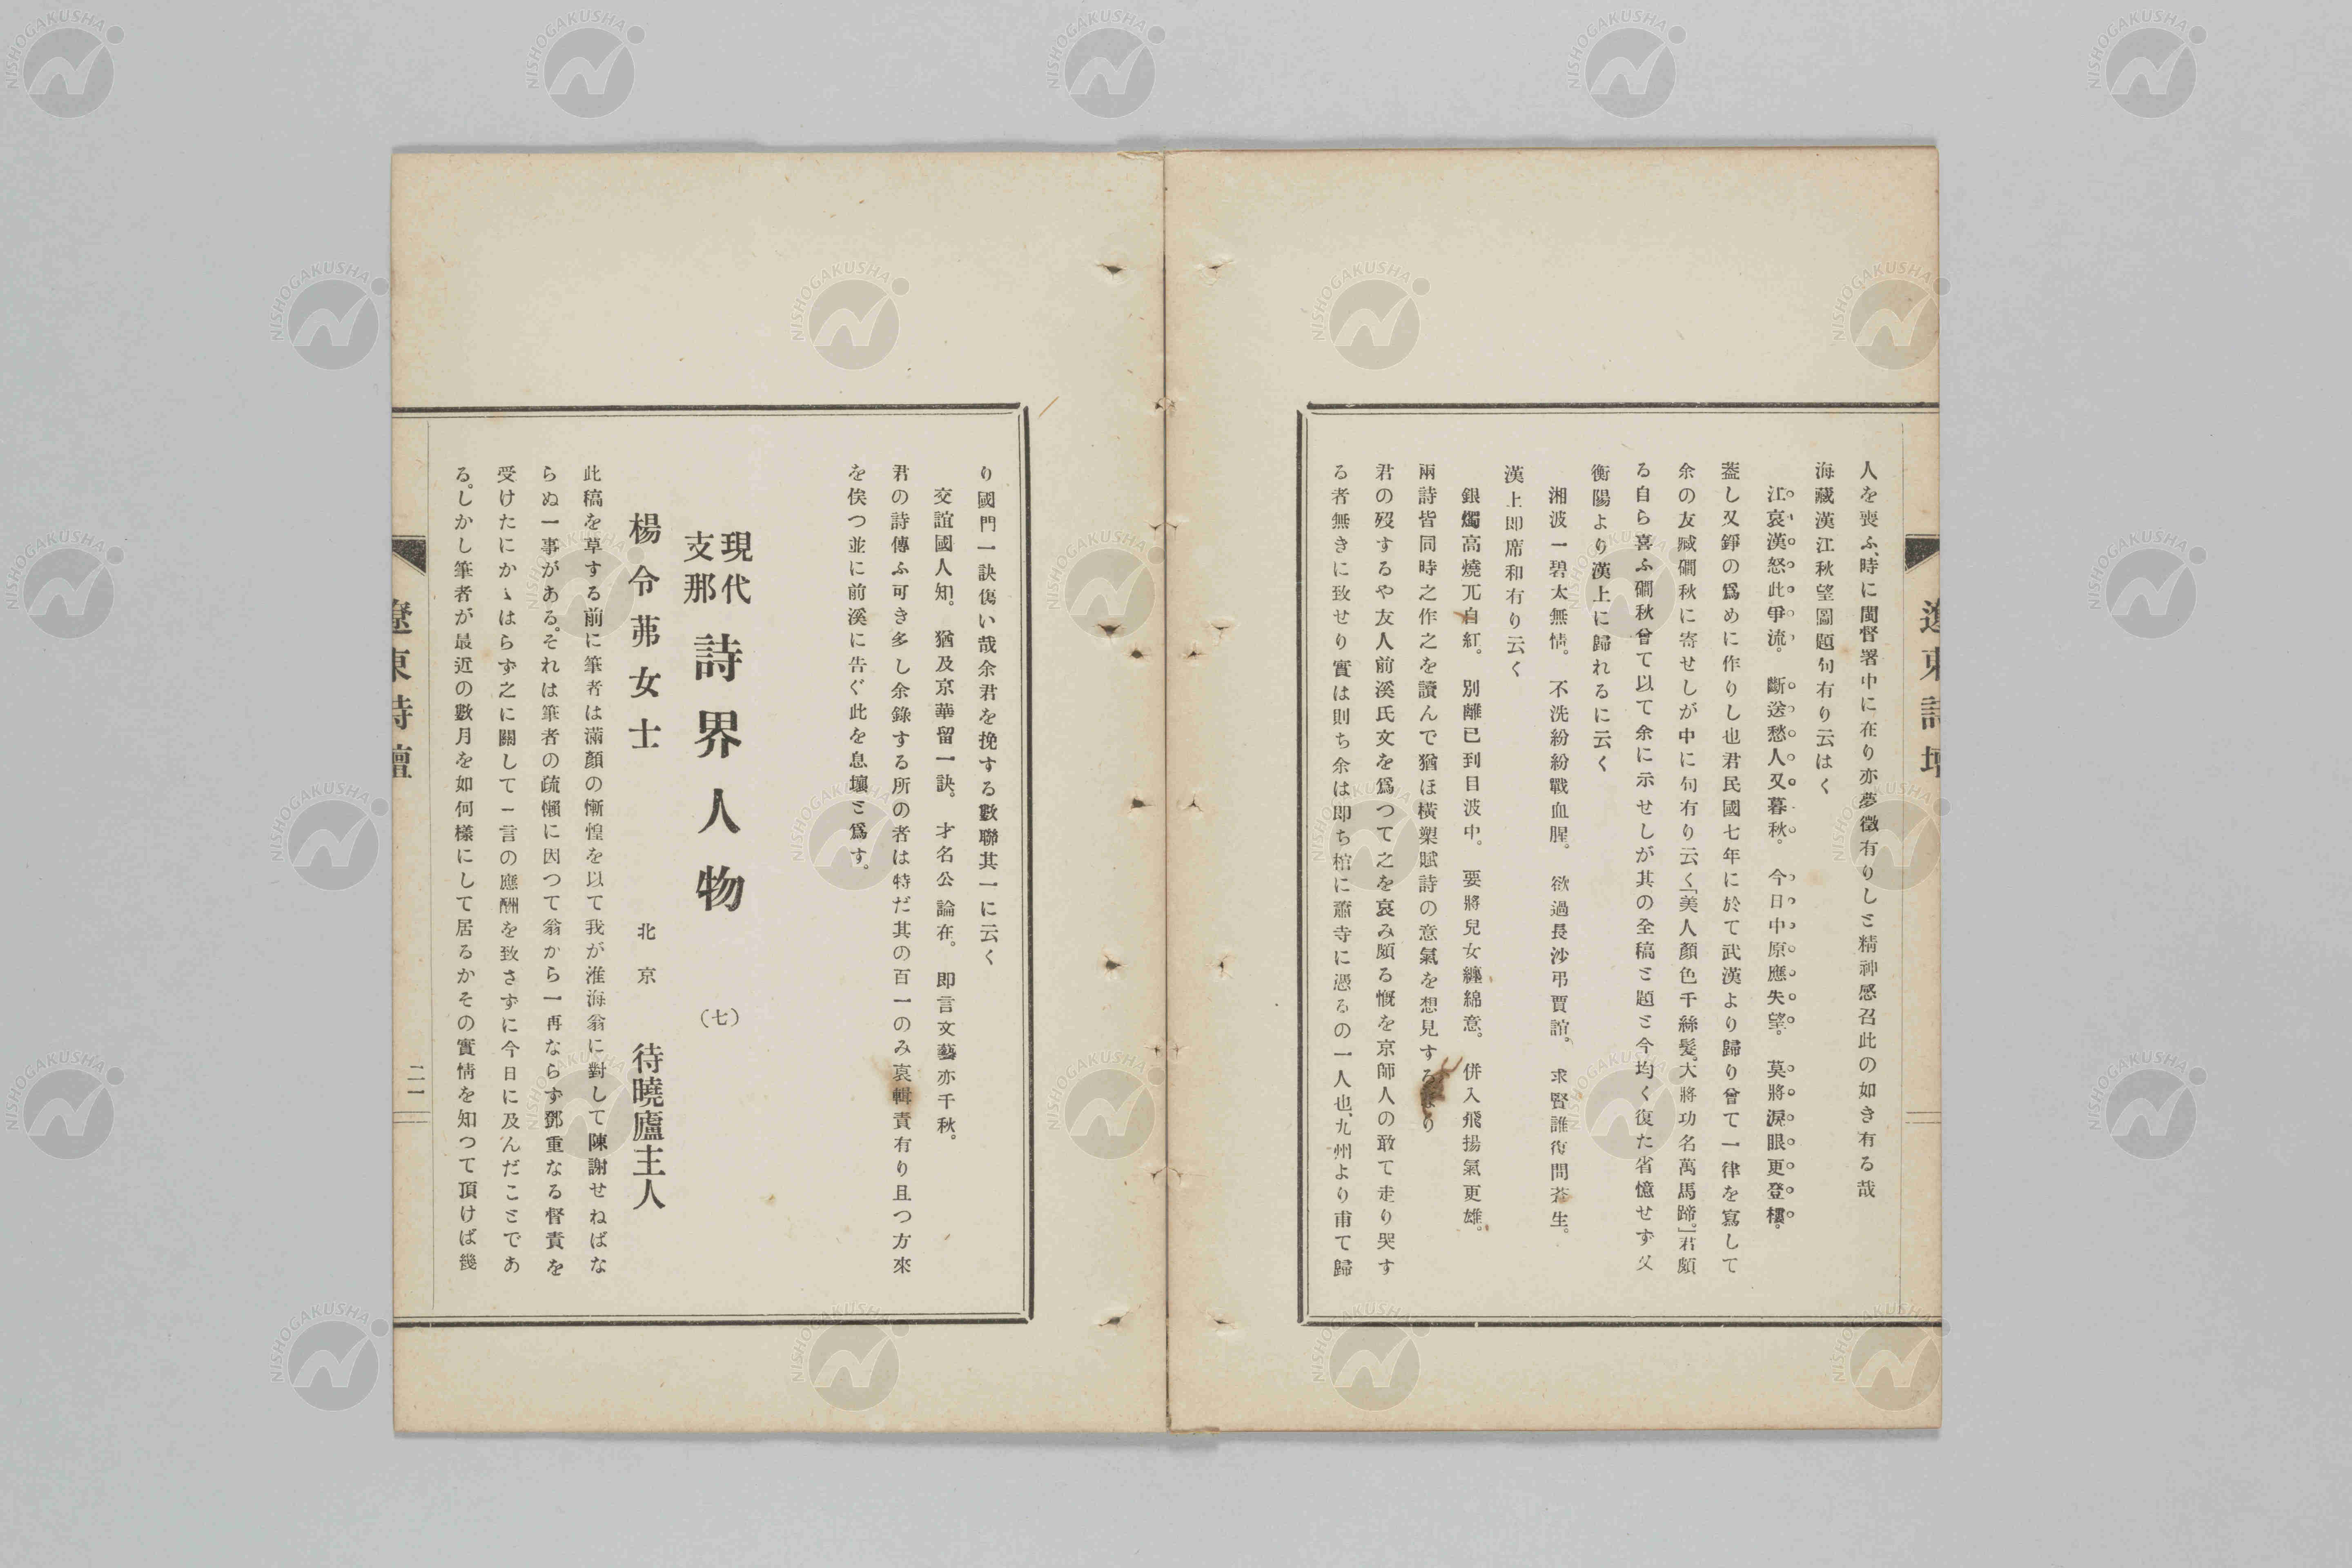 人を喪ふ、時に閩督署中に在り亦夢徵有りしと精神感召此の如き有る哉
海藏漢江秋望圖題句有り云はく
江哀漢怒此爭流。斷送愁人又暮秋。今日中原應失望。莫將淚眼更登樓。
蓋し又錚の爲めに作りし也君民國七年に於て武漢より歸り曾て一律を寫して
余の友臧磵秋に寄せしが中に句有り云く「美人顏色千絲髮。大將功名萬馬蹄。」君頗
る自ら喜ふ磵秋曾て以て余に示せしが其の全稿と題と今均く復た省憶せず又
衡陽より漢上に歸れるに云く
湘波一碧太無情。不洗紛紛戰血腥。欲過長沙弔賈誼。求賢誰復問蒼生。
漢上即席和有り云く
銀燭高燒兀自紅。別離已到目波中。要將兒女纏綿意。併入飛揚氣更雄。
兩詩皆同時之作之を讀んで猶ほ橫槊賦詩の意氣を想見するなり
君の歿するや友人前溪氏文を爲つて之を哀み頗る慨を京師人の敢て走り哭す
る者無きに致せり實は則ち余は即ち棺に蕭寺に憑るの一人也、九州より甫て歸
遼東詩壇
り國門一訣傷い哉余君を挽する數聯其一に云く
交誼國人知。猶及京華留一訣。才名公論在。即言文藝亦千秋。
君の詩傳ふ可き多し余錄する所の者は特だ其の百一のみ裒輯責有り且つ方來
を俟つ並に前溪に告ぐ此を息壤と爲す。
現代支那詩界人物（七）
楊令茀女士 北京 待曉廬主人
此稿を草する前に筆者は滿顏の慚惶を以て我が淮海翁に對して陳謝せねばな
らぬ一事がある。それは筆者の疏懶に因つて翁から一再ならず鄧重なる督責を
受けたにかゝはらず之に關して一言の應酬を致さずに今日に及んだことであ
る。しかし筆者が最近の數月を如何樣にして居るかその實情を知つて頂けば幾
遼東詩壇 二一
NISHOGAKUSHA